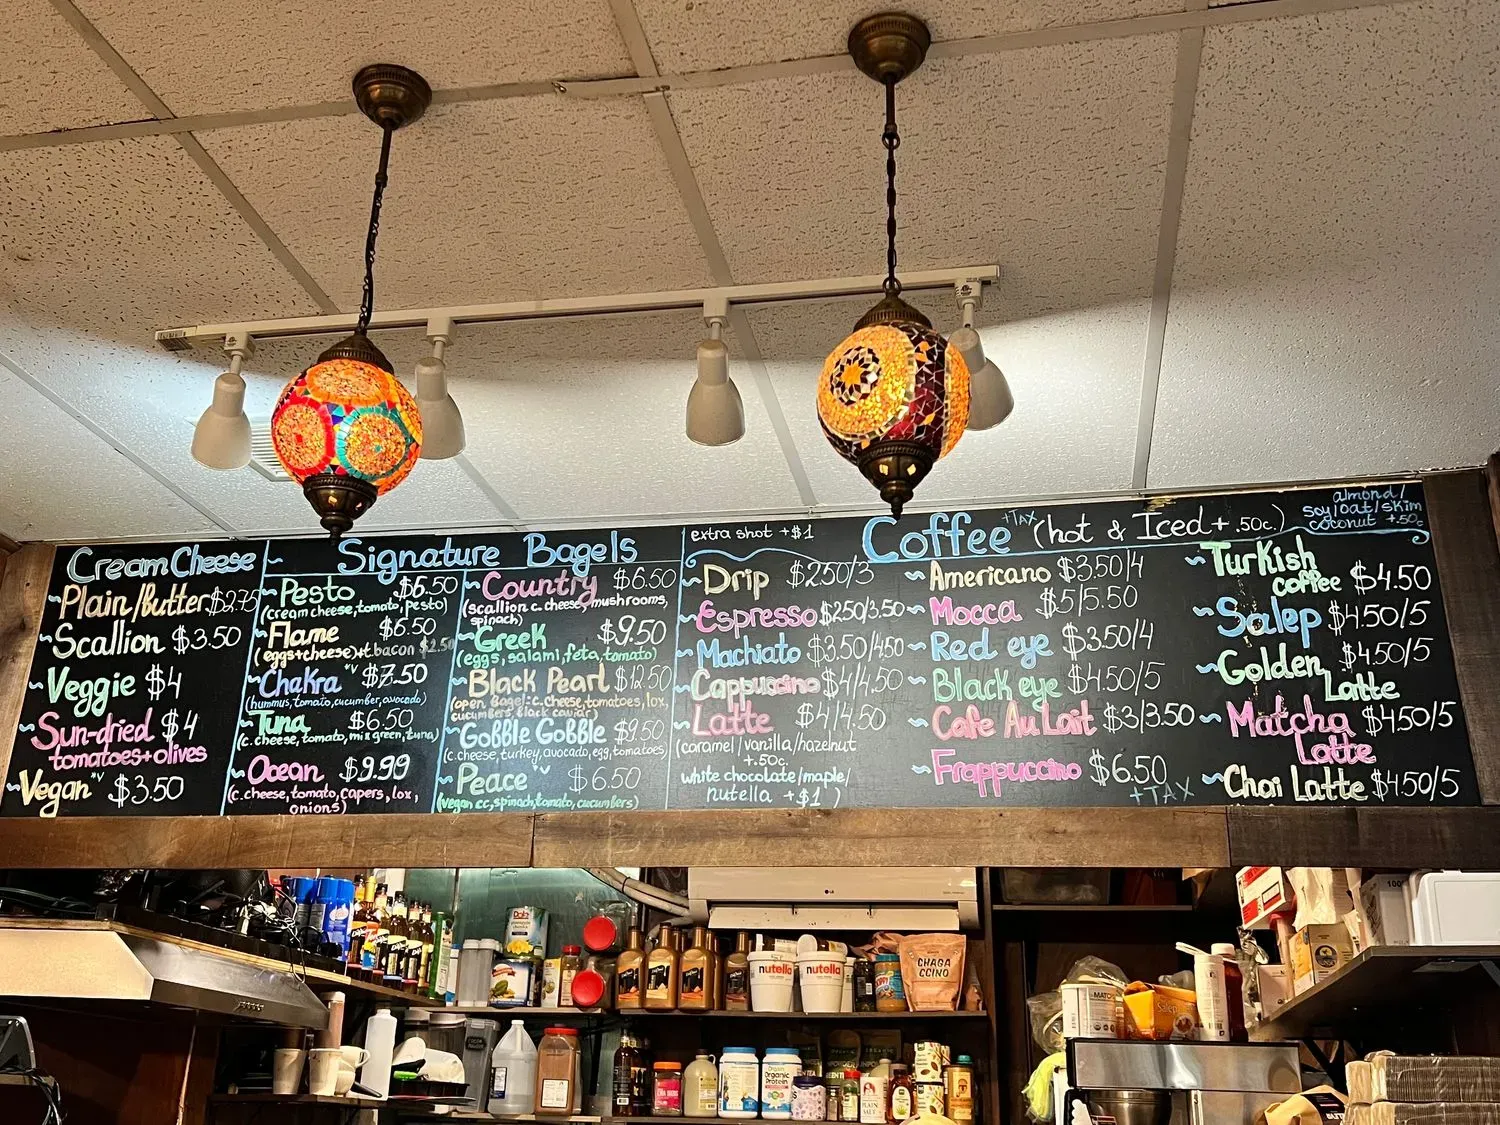 Cream Cheese
~Plain/Butter $2.75
~Scallion $3.50
~Veggie $4
~Sun-dried $4
tomatoes+olives
~Vegan "V $3.50
~ Signature Bagels
~Pesto $6.50
(cream cheese, tomato, pesto)
~Flame $6.50
(eggs+cheese)+t.bacon $2.50
~Chakra "V $7.50
(hummus, tomato, cucumber, avocado)
~Tuna $6.50
(c.cheese, tomato, mix green, tuna)
~Ocean $9.99
(c.cheese, tomato, capers, lox,
onions)
~Country $6.50
(scallion c. cheese, mushrooms,
spinach)
~Greek $9.50
(eggs, salami, feta, tomato)
~Black Pearl $12.50
(open bagel: c.cheese, tomatoes, lox,
cucumbers black caviar)
~Gobble Gobble $9.50
(c.cheese, turkey, avocado, egg, tomatoes)
~Peace "V $6.50
(vegan cc, spinach, tomato, cucumbers)
extra shot +$1
Coffee +TAX (hot & Iced + .50c.)
almond/
soy/oat/skim
coconut +.50c
~Drip $2.50/3
~Espresso $2.50/3.50
~Machiato $3.50/4.50
~Cappuccino $4/4.50
~Latte $4/4.50
(caramel/vanilla/hazelnut
+.50c.
white chocolate/maple/
nutella +$1)
~Americano $3.50/4
~Mocca $5/5.50
~Red eye $3.50/4
~Black eye $4.50/5
~Cafe Au Lait $3/3.50
~Frappuccino $6.50
+TAX
~Turkish
coffee $4.50
~Salep $4.50/5
~Golden $4.50/5
Latte
~Matcha $4.50/5
Latte
~Chai Latte $4.50/5
LG
Dole
nutella
nutella
CHAGA
CCINO
MATC
Salep
Organic
Protein